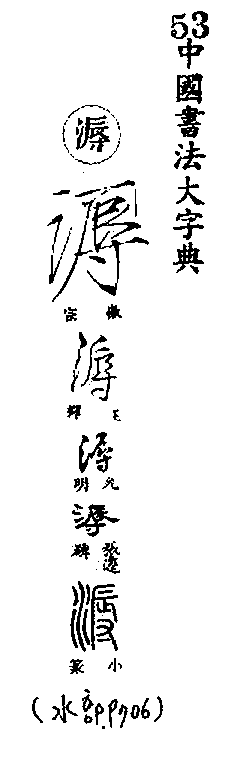 53
中國書法大字典
溽
溽
徽宗
溽
王鐸
溽
允明
溽
張遷碑
溽
小篆
(水部P.706)